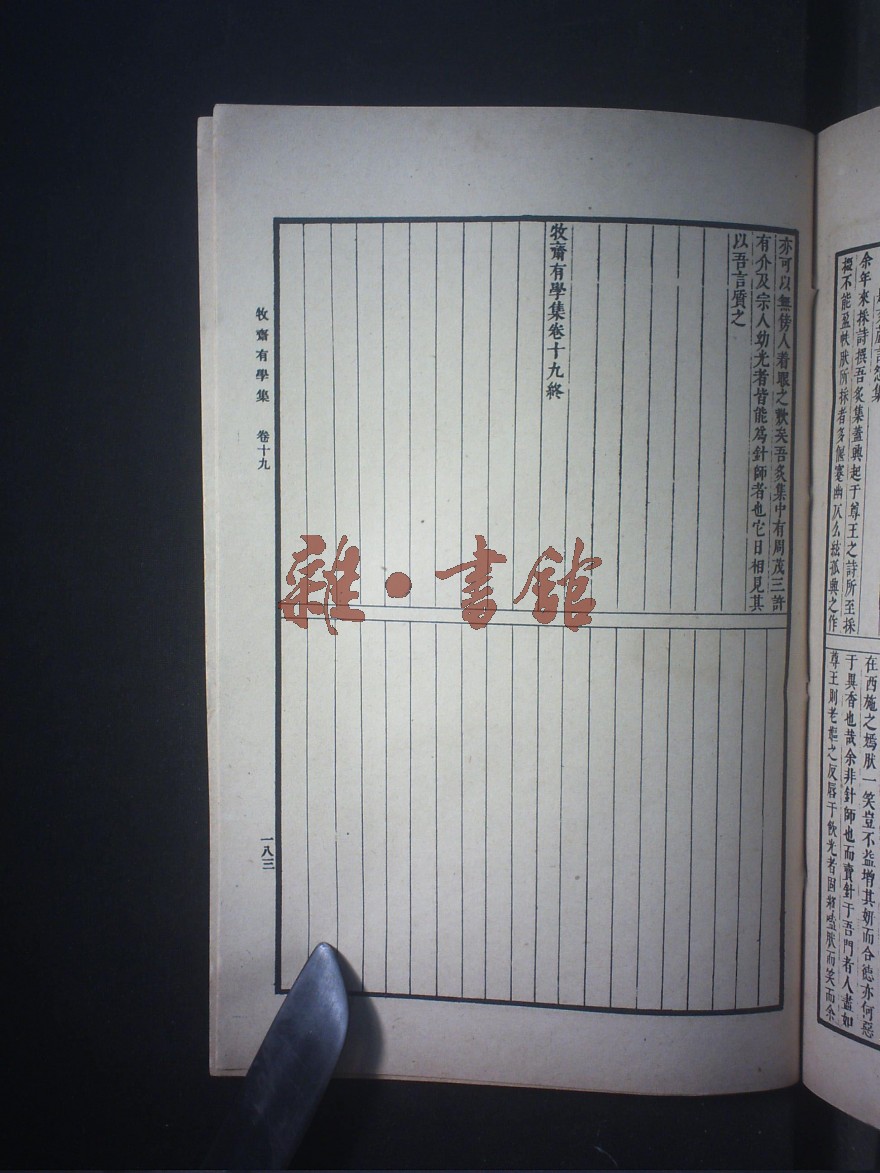 余年來採詩撰吾炙集蓋興起于尊王之詩所至採
掇不能盈帙然所採者多偃蹇幽仄么絃孤興之作
在西施之嫣然一笑豈不益增其妍而合德亦何惡
于異香也哉余非針師也而賣針于吾門者人盡如
尊王則老嫗之反唇于飲光者固將啞然而笑而余
亦可以無傍人着眼之歎矣吾炙集中有周茂三許
有介及宗人幼光者皆能爲針師者也它日相見其
以吾言質之
牧齋有學集卷十九終
牧齋有學集 卷十九
一八三
雜·書館